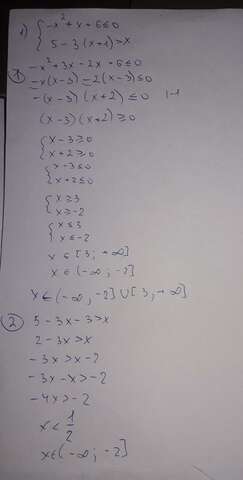 1) { -x² + x + 6 ≤ 0
5 - 3(x+1) > x
① -x² + 3x - 2x + 6 ≤ 0
-x(x-3) - 2(x-3) ≤ 0
-(x-3)(x+2) ≤ 0 |·-1
(x-3)(x+2) ≥ 0
{ x - 3 ≥ 0
x + 2 ≥ 0
{ x - 3 ≤ 0
x + 2 ≤ 0
{ x ≥ 3
x ≥ -2
{ x ≤ 3
x ≤ -2
x ∈ [3; +∞]
x ∈ (-∞; -2]
x ∈ (-∞; -2] ∪ [3; +∞]
② 5 - 3x - 3 > x
2 - 3x > x
-3x > x - 2
-3x - x > -2
-4x > -2
x < 1/2
x ∈ (-∞; -2]